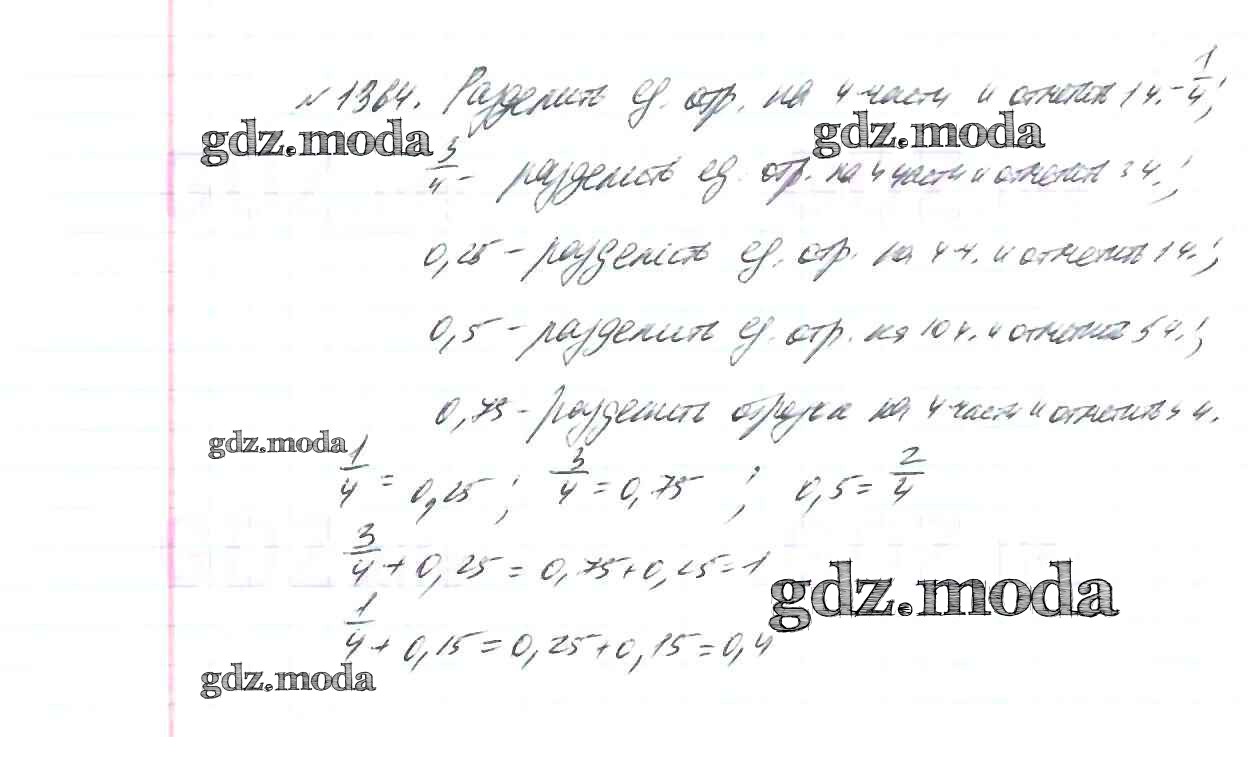 № 1364. Разделить ед. отр. на 4 части и отметить 1 ч. - 1/4;
gdz.moda gdz.moda
3/4 - разделить ед. отр. на 4 части и отметить 3 ч.;
0,25 - разделить ед. отр. на 4 ч. и отметить 1 ч.;
0,5 - разделить ед. отр. на 10 ч. и отметить 5 ч.;
0,75 - разделить отрезок на 4 части и отметить ч.
gdz.moda
1/4 = 0,25 ; 3/4 = 0,75 ; 0,5 = 2/4
3/4 + 0,25 = 0,75 + 0,25 = 1
gdz.moda
1/4 + 0,15 = 0,25 + 0,15 = 0,4
gdz.moda